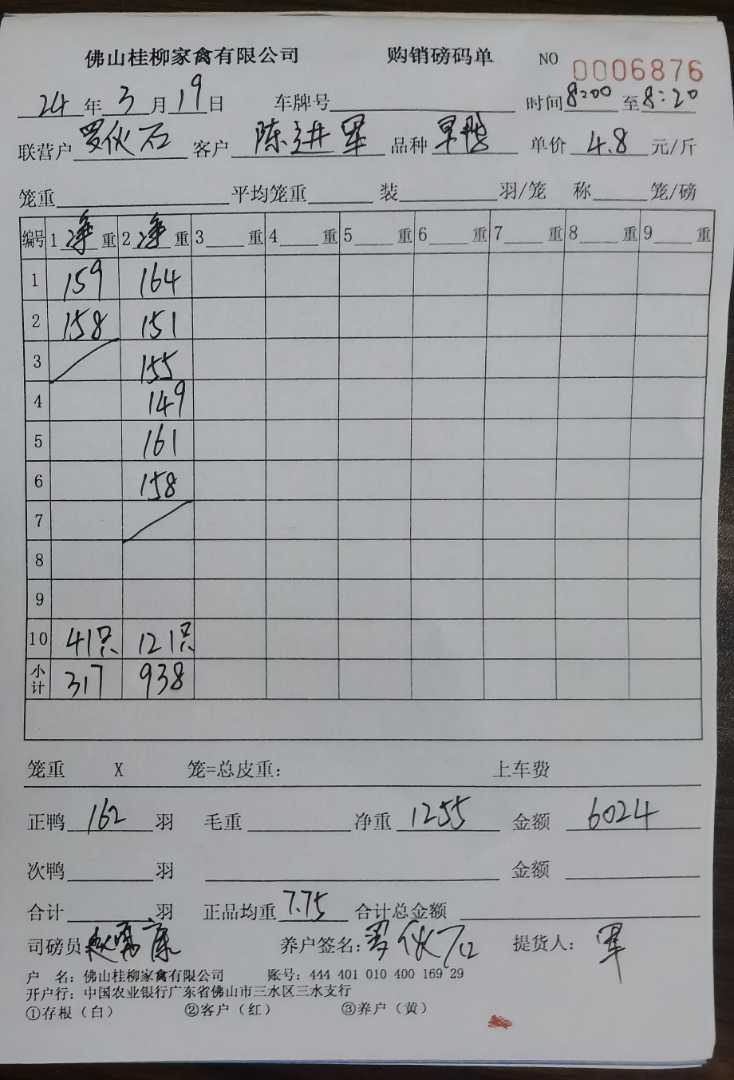 佛山桂柳家禽有限公司 购销磅码单 NO 0006876
24年3月19日 车牌号 时间8:00至8:20
联营户 罗伙石 客户 陈进军 品种 旱鸭 单价 4.8 元/斤
笼重 平均笼重 装 羽/笼 称 笼/磅
编号 1 净 重 2 净 重 3 重 4 重 5 重 6 重 7 重 8 重 9 重
1 159 164
2 158 151
3 155
4 149
5 161
6 158
7
8
9
10 41只 121只
小计 317 938
笼重 X 笼=总皮重: 上车费
正鸭 162 羽 毛重 净重 1255 金额 6024
次鸭 羽 金额
合计 羽 正品均重 7.75 合计总金额
司磅员 养户签名: 罗伙石 提货人: 军
户 名: 佛山桂柳家禽有限公司 账号: 444 401 010 400 169 29
开户行: 中国农业银行广东省佛山市三水区三水支行
①存根(白) ②客户(红) ③养户(黄)